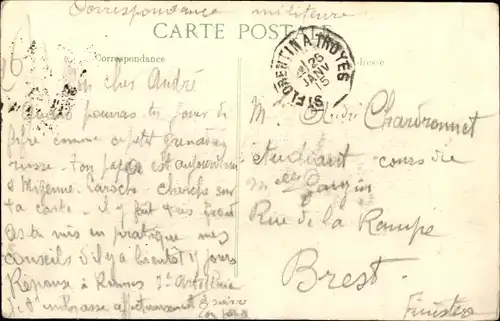 Correspondance militaire
CARTE POSTALE
Correspondance
Adresse
ST FLORENTIN A TROYES
25
JANV
15
Mon cher André
Quand pourras tu jouer du
fifre comme ce petit grenadier
russe. Ton papa est aujourd'hui
à Migenne-Laroche. Cherche sur
ta carte. Il y fait très froid
As tu mis en pratique mes
conseils d'il y a bientôt 15 jours
Réponse à Rennes 7e Artillerie
Je t'embrasse affectueusement à suivre
ton papa
M. André Chardronnet
étudiant cours de
Melle
Rue de la Rampe
Brest.
Finistère